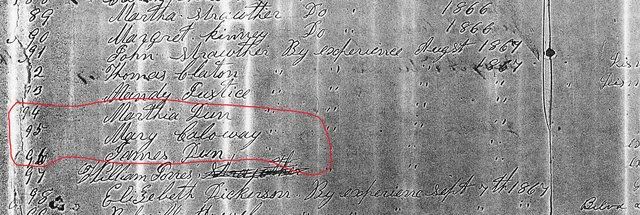 89 Martha Strawther Do 1866
90 Margret Kinsey Do 1866
91 John Strawther By experience August 1867
92 Thomas Claton " " " 1867
93 Mandy Justice " "
94 Marthia Dun " "
95 Mary Caloway " "
96 James Dun " "
97 William Jones
98 Elizebeth Dickerson. By experience sept 7th 1867